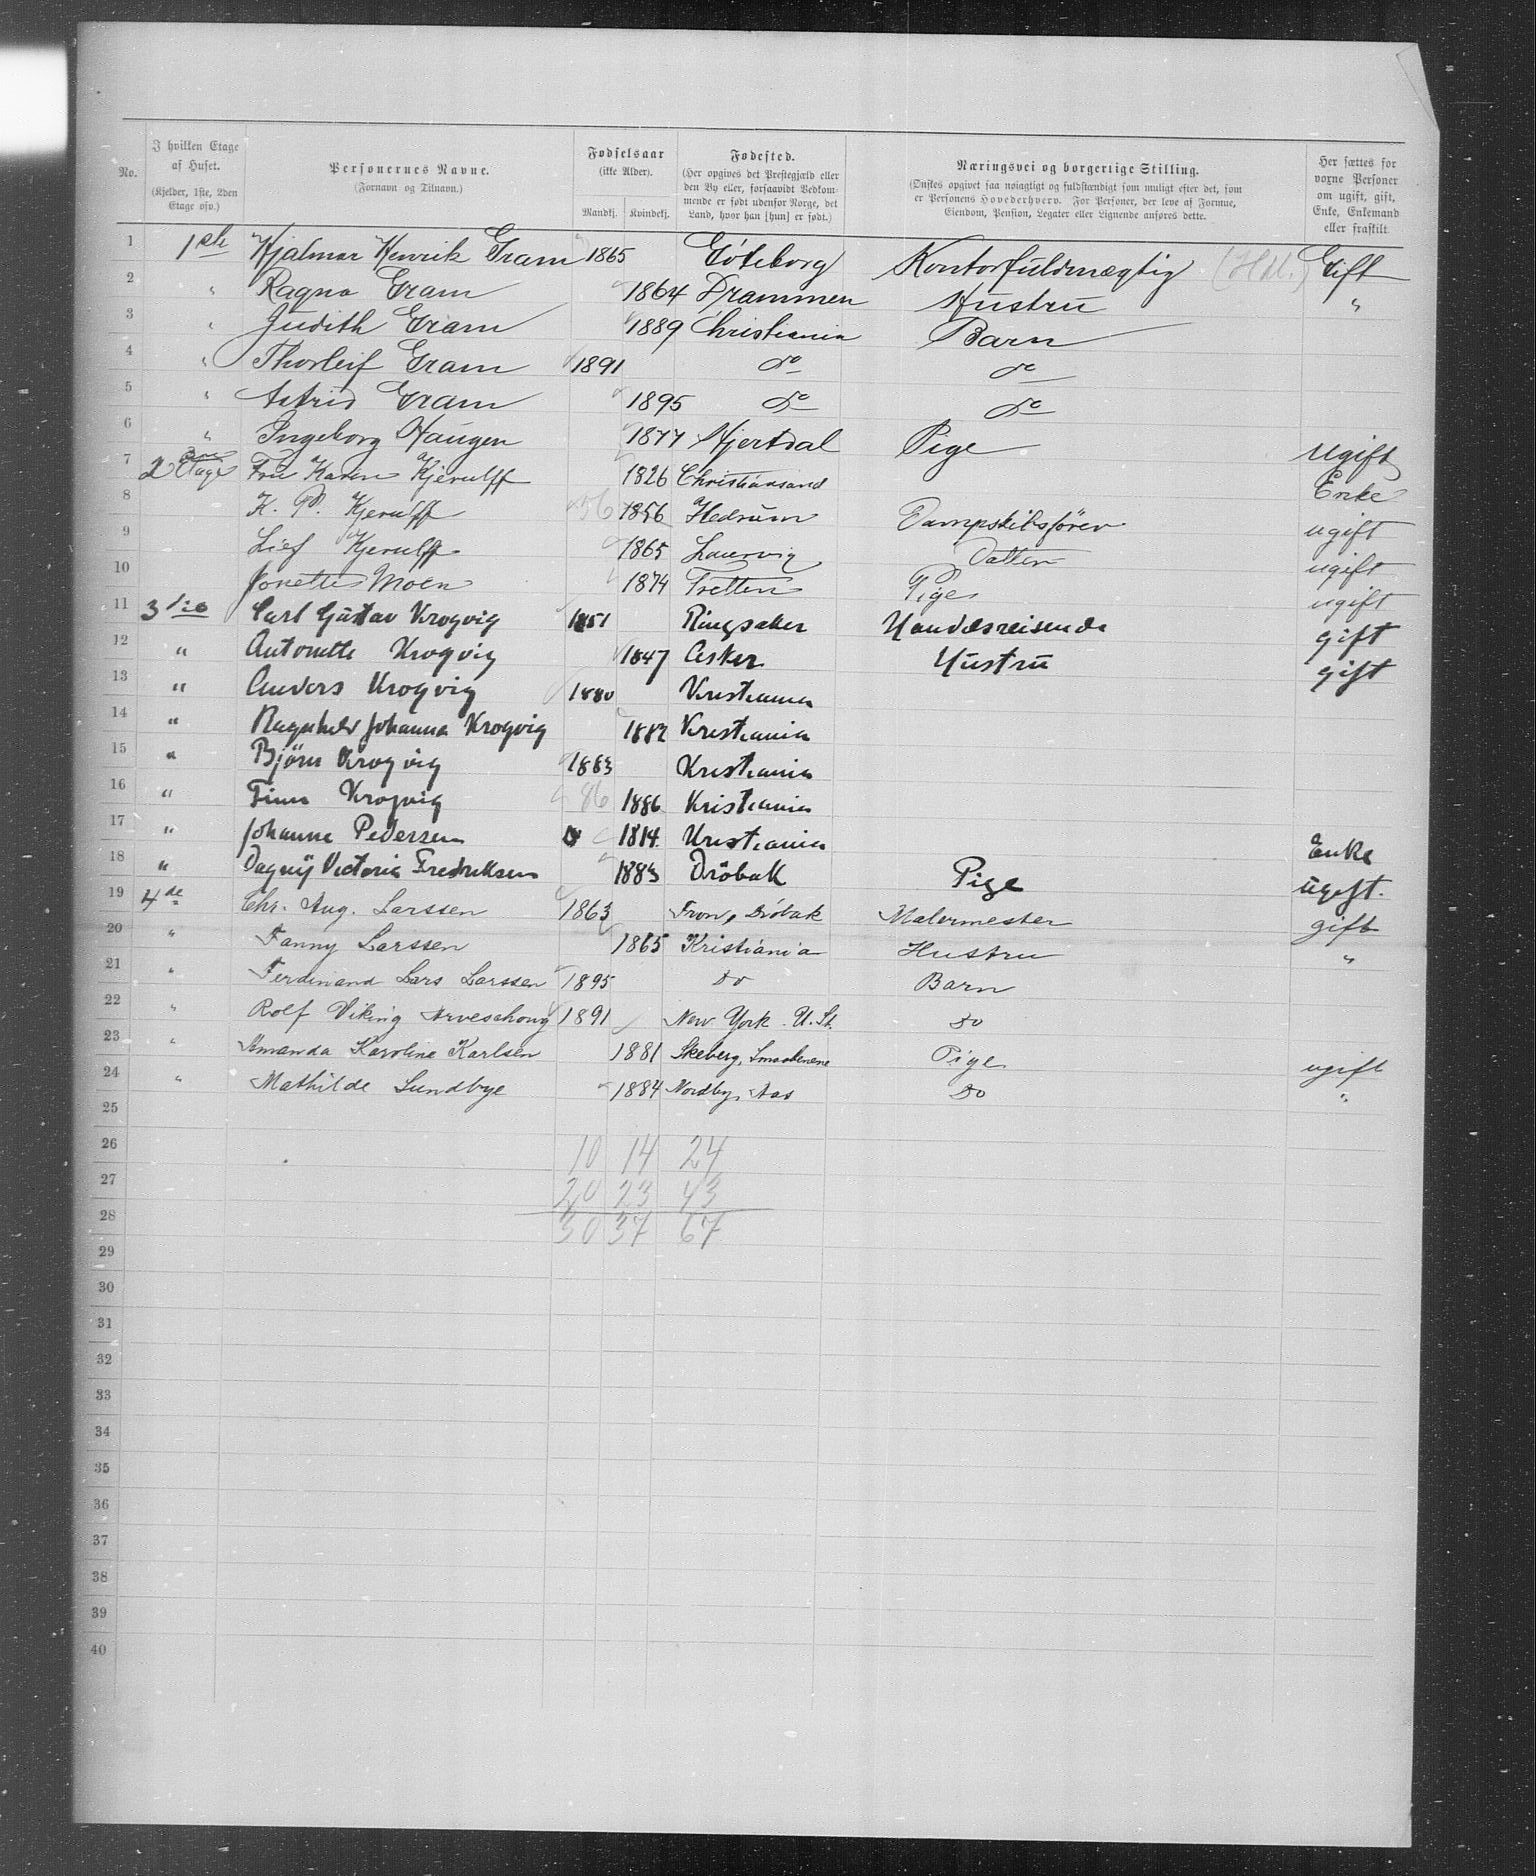 No. I hvilken Etage af Huset. (Kjelder, 1ste, 2den Etage osv.) Personernes Navne. (Fornavn og Tilnavn.) Fødselsaar (ikke Alder). Mandkj. Kvindekj. Fødested. (Her opgives det Prestegjæld eller den By eller, forsaavidt Vedkommende er født udenfor Norge, det Land, hvor han [hun] er født.) Næringsvei og borgerlige Stilling. (Ønskes opgivet saa nøiagtigt og fuldstændigt som muligt efter det, som er Personens Hovederhverv. For Personer, der leve af Formue, Eiendom, Pension, Legater eller Lignende anføres dette. Her sættes for voxne Personer om ugift, gift, Enke, Enkemand eller fraskilt.
1 1ste Hjalmar Henrik Gram 1865 Göteborg Kontorfuldmægtig (Hdl.) Gift
2 " Ragna Gram 1864 Drammen Hustru "
3 " Judith Gram 1889 Christiania Barn
4 " Thorleif Gram 1891 do do
5 " Astrid Gram 1895 do do
6 " Ingeborg Haugen 1877 Hjertdal Pige ugift
7 2 Etage Fru Karen Kjerulff 1826 Christiansand Enke
8 K. P. Kjerulff 56 1856 Hedrum Dampskibsförer ugift
9 Lief Kjerulff 1865 Laurvig Datter ugift
10 Jonette Moen 1874 Tretten Pige ugift
11 3die Carl Gustav Krogvig 1851 Ringsaker Handelsreisende gift
12 " Antonette Krogvig 1847 Asker Hustru gift
13 " Anders Krogvig 1880 Kristiania
14 " Ragnhild Johanna Krogvig 1882 Kristiania
15 " Bjørn Krogvig 1883 Kristiania
16 " Finn Krogvig 86 1886 Kristiania
17 " Johanne Pedersen 1814 Kristiania Enke
18 " Dagny Victoria Fredriksen 1883 Dröbak Pige ugift.
19 4de Chr. Aug. Larssen 1863 Fron, Dröbak Malermester gift
20 " Fanny Larssen 1865 Kristiania Hustru "
21 " Ferdinand Lars Larssen 1895 Do Barn
22 " Rolf Viking Arveschoug 1891 New York. U. St. Do
23 " Amanda Karoline Karlsen 1881 Skeberg, Smaalenene Pige ugift
24 " Mathilde Sundbye 1884 Nordby, Aas Do "
25
26 10 14 24
27 20 23 43
28 30 37 67
29
30
31
32
33
34
35
36
37
38
39
40